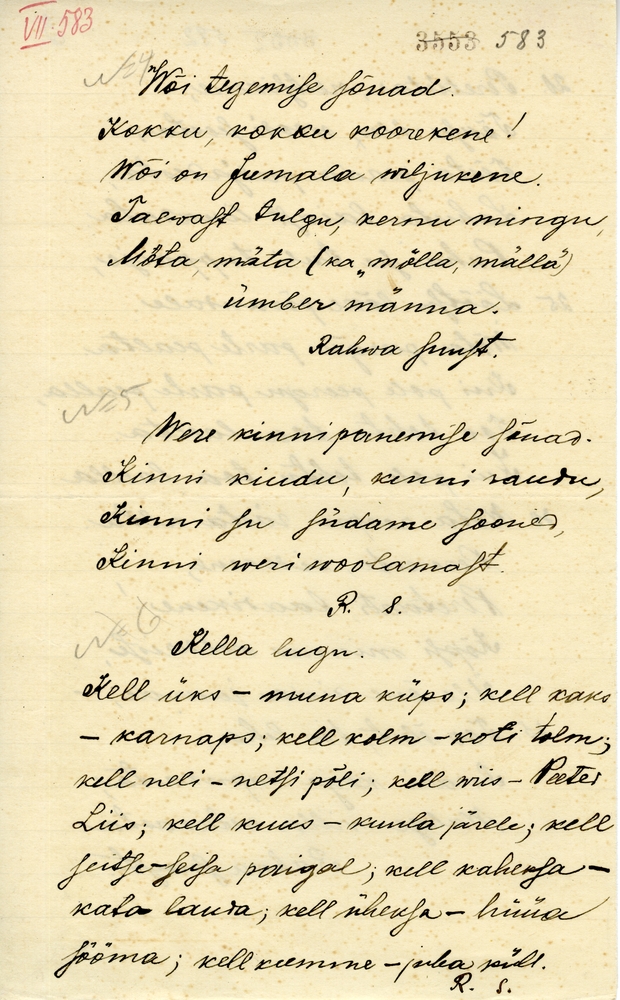 VII 583
3553 583
№ 4
"Wõi tegemise sõnad.
Kokku, kokku koorekene!
Wõi on Jumala wiljukene.
Taewast tulgu, kernu mingu,
Mõta, mäta (ka „mõlla, mälla")
ümber männa.
Rahwa suust.
№ 5
Were kinnipanemise sõnad.
Kinni kiudu, kenni raudu,
Kinni su südame sooned,
Kinni weri woolamast.
R. s.
№ 6
Kella lugu.
Kell üks – muna küps; kell kaks
– karnaps; kell kolm – koti tolm;
kell neli – netsi põli; kell wiis – Peeter
Liis; kell kuus – kuula järele; kell
seitse – seisa paigal; kell kaheksa –
kata lauda; kell üheksa – hüüa
sööma; kell kümme – juba küll.
R. s.